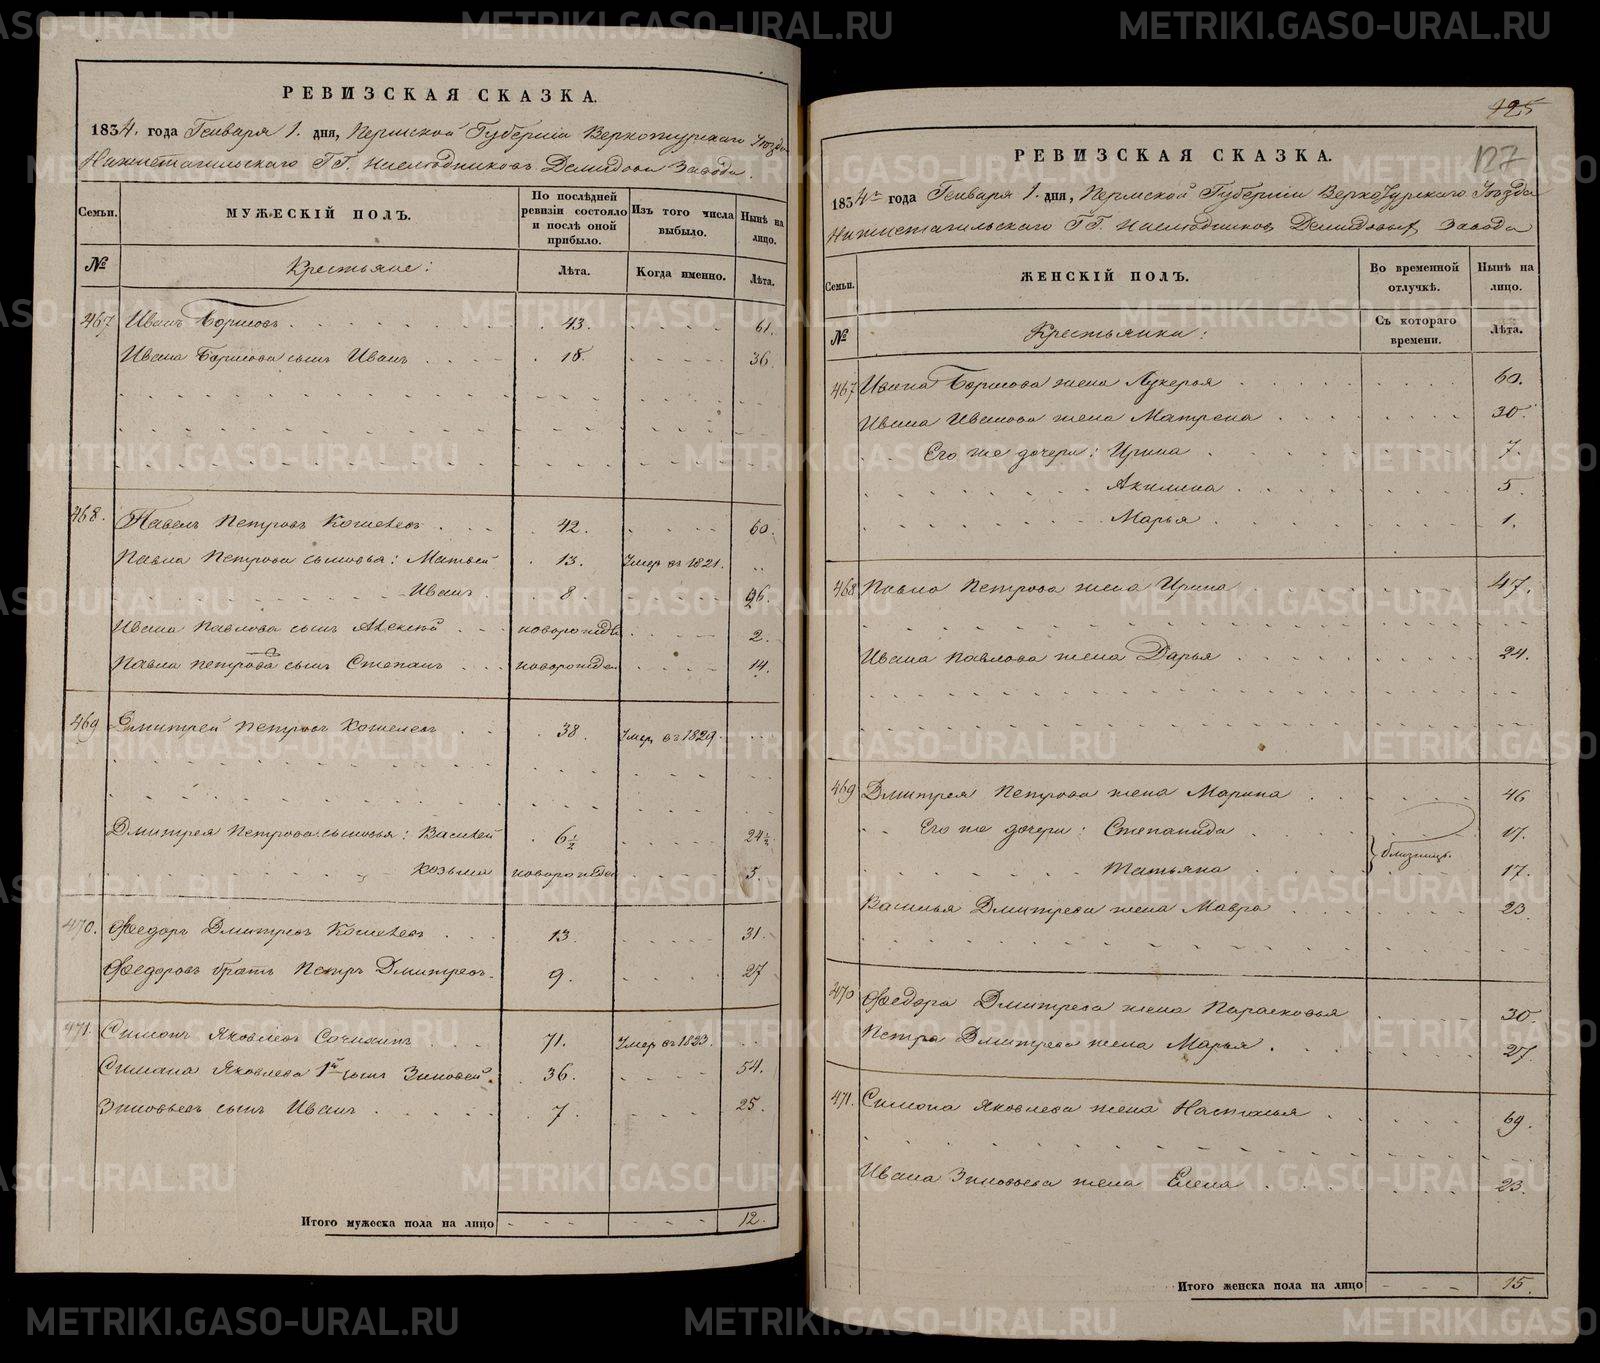 РЕВИЗСКАЯ СКАЗКА.
1834. года Генваря 1. дня, Пермской Губерніи Верхотурскаго Уезда
Нижнетагильскаго ГГ. Наследниковъ Демидова завода.
Семьи.
МУЖЕСКІЙ ПОЛЪ.
По послѣдней ревизіи состояло и послѣ оной прибыло.
Изъ того числа выбыло.
Нынѣ на лицо.
№
Крестьяне:
Лѣта.
Когда именно.
Лѣта.
467 Иванъ Борисовъ 43. 61.
Ивана Борисова сынъ Иванъ 18. 36.
468. Павелъ Петровъ Кошелевъ 42. 60.
Павла Петрова сыновья: Матвей 13. Умер въ 1821.
Иванъ 8. 26.
Ивана Павлова сынъ Алексѣй новорожде 2.
Павла Петрова сынъ Степанъ новорожден 14.
469 Дмитрей Петровъ Кошелевъ 38. Умер въ 1829.
Дмитрея Петрова сыновья: Василей 6½ 24½
Козьма новорожден 3.
470. Федоръ Дмитревъ Кошелевъ 13. 31.
Федоровъ братъ Петръ Дмитревъ 9. 27
471. Симонъ Яковлевъ 71. Умер въ 1823.
Симона Яковлева 1й сынъ Зиновей 36. 54.
Зиновьевъ сынъ Иванъ 7. 25.
Итого мужеска пола на лицо 12.
125
127
РЕВИЗСКАЯ СКАЗКА.
1834го года Генваря 1. дня, Пермской Губерніи Верхотурскаго Уезда
Нижнетагильскаго ГГ. Наследниковъ Демидовыхъ завода
Семьи.
ЖЕНСКІЙ ПОЛЪ.
Во временной отлучкѣ.
Нынѣ на лицо.
№
Крестьянки:
Съ котораго времени.
Лѣта.
467 Ивана Борисова жена Лукерья 60.
Ивана Иванова жена Матрена 30.
Его же дочери: Ирина 7.
Акилина 5.
Марья 1.
468 Павла Петрова жена Ирина 47.
Ивана Павлова жена Дарья 24.
469 Дмитрея Петрова жена Марина 46
Его же дочери: Степанида 17.
близнецы.
Татьяна 17.
Василья Дмитрева жена Мавра 23.
470 Федора Дмитрева жена Парасковья 30.
Петра Дмитрева жена Марья 27.
471. Симона Яковлева жена Настасья 69.
Ивана Зиновьева жена Елена 23.
Итого женска пола на лицо 15.
METRIKI.GASO-URAL.RU